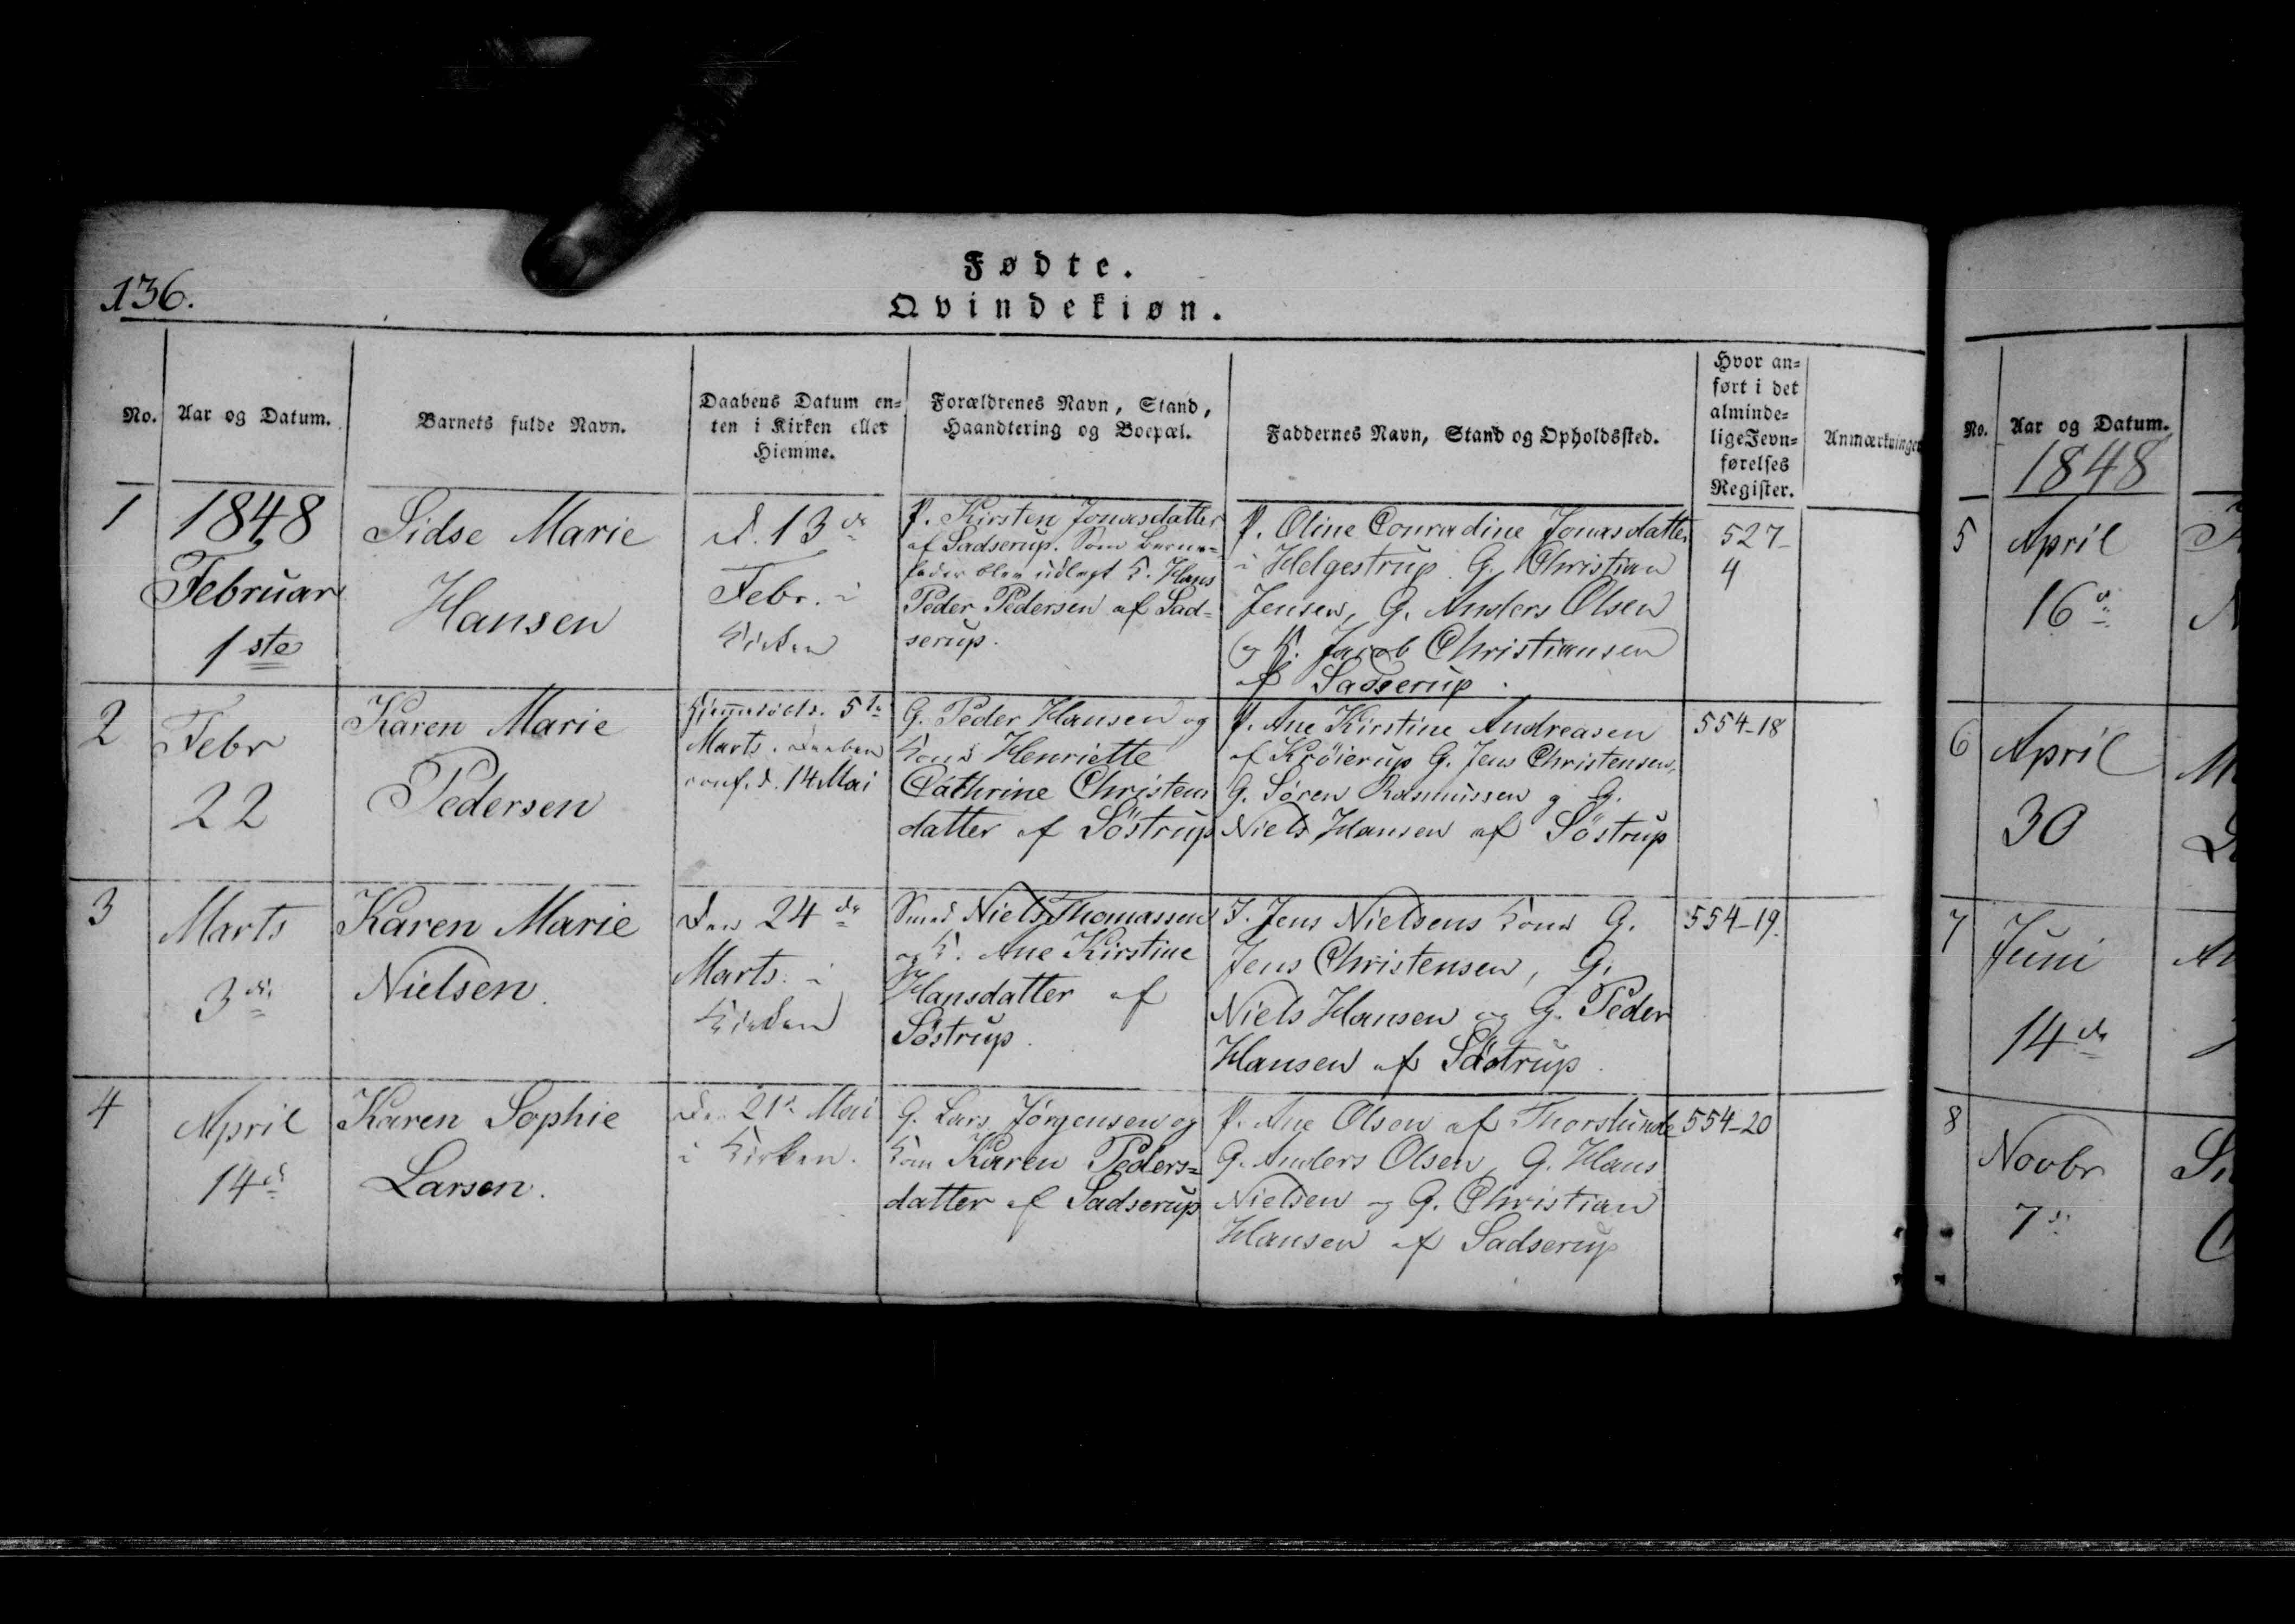 136.
Fødte.
Qvindekiøn.
No.
Aar og Datum.
Barnets fulde Navn.
Daabens Datum en=
ten i Kirken eller
Hiemme.
Forældrenes Navn, Stand,
Haandtering og Boepæl.
Faddernes Navn, Stand og Opholdssted.
Hvor an=
ført i det
alminde=
lige Jevn=
førelses
Register.
Anmærkninger
1
1848
Februar
1ste
Sidse Marie
Hansen
d. 13de
Febr. i
Kirken
P. Kirsten Jonasdatter
af Sadserup. Som Barne=
fader blev udlagt K. Hans
Peder Pedersen af Sad=
serup.
P. Oline Conradine Jonasdatter
i Helgestrup. G. Christian
Jensen, G. Anders Olsen
og K. Jacob Christiansen
af Sadserup.
527-
4
2
Febr
22
Karen Marie
Pedersen
Hjemmedøbt. 5te
Marts. Daaben
conf. d. 14 Mai
G. Peder Hansen og
Kone Henriette
Cathrine Christens
datter af Söstrup
P. Ane Kirstine Andreasen
af Kröierup G. Jens Christensen,
G. Sören Rasmussen og G.
Niels Hansen af Söstrup
554-18
3
Marts
3die
Karen Marie
Nielsen.
Den 24de
Marts. i
Kirken
Smed Niels Thomassen
og K. Ane Kirstine
Hansdatter af
Söstrup.
I. Jens Nielsens Kone G.
Jens Christensen, G.
Niels Hansen og G. Peder
Hansen af Söstrup.
554-19.
4
April
14d
Karen Sophie
Larsen.
Den 21de Mai
i Kirken.
G. Lars Jörgensen og
Kone Karen Peders=
datter af Sadserup
P. Ane Olsen af Thorslunde
G. Anders Olsen, G. Hans
Nielsen og G. Christian
Hansen af Sadserup
554-20
No.
Aar og Datum.
1848
5
April
16d
6
April
30
7
Juni
14de
8
Novbr
7d